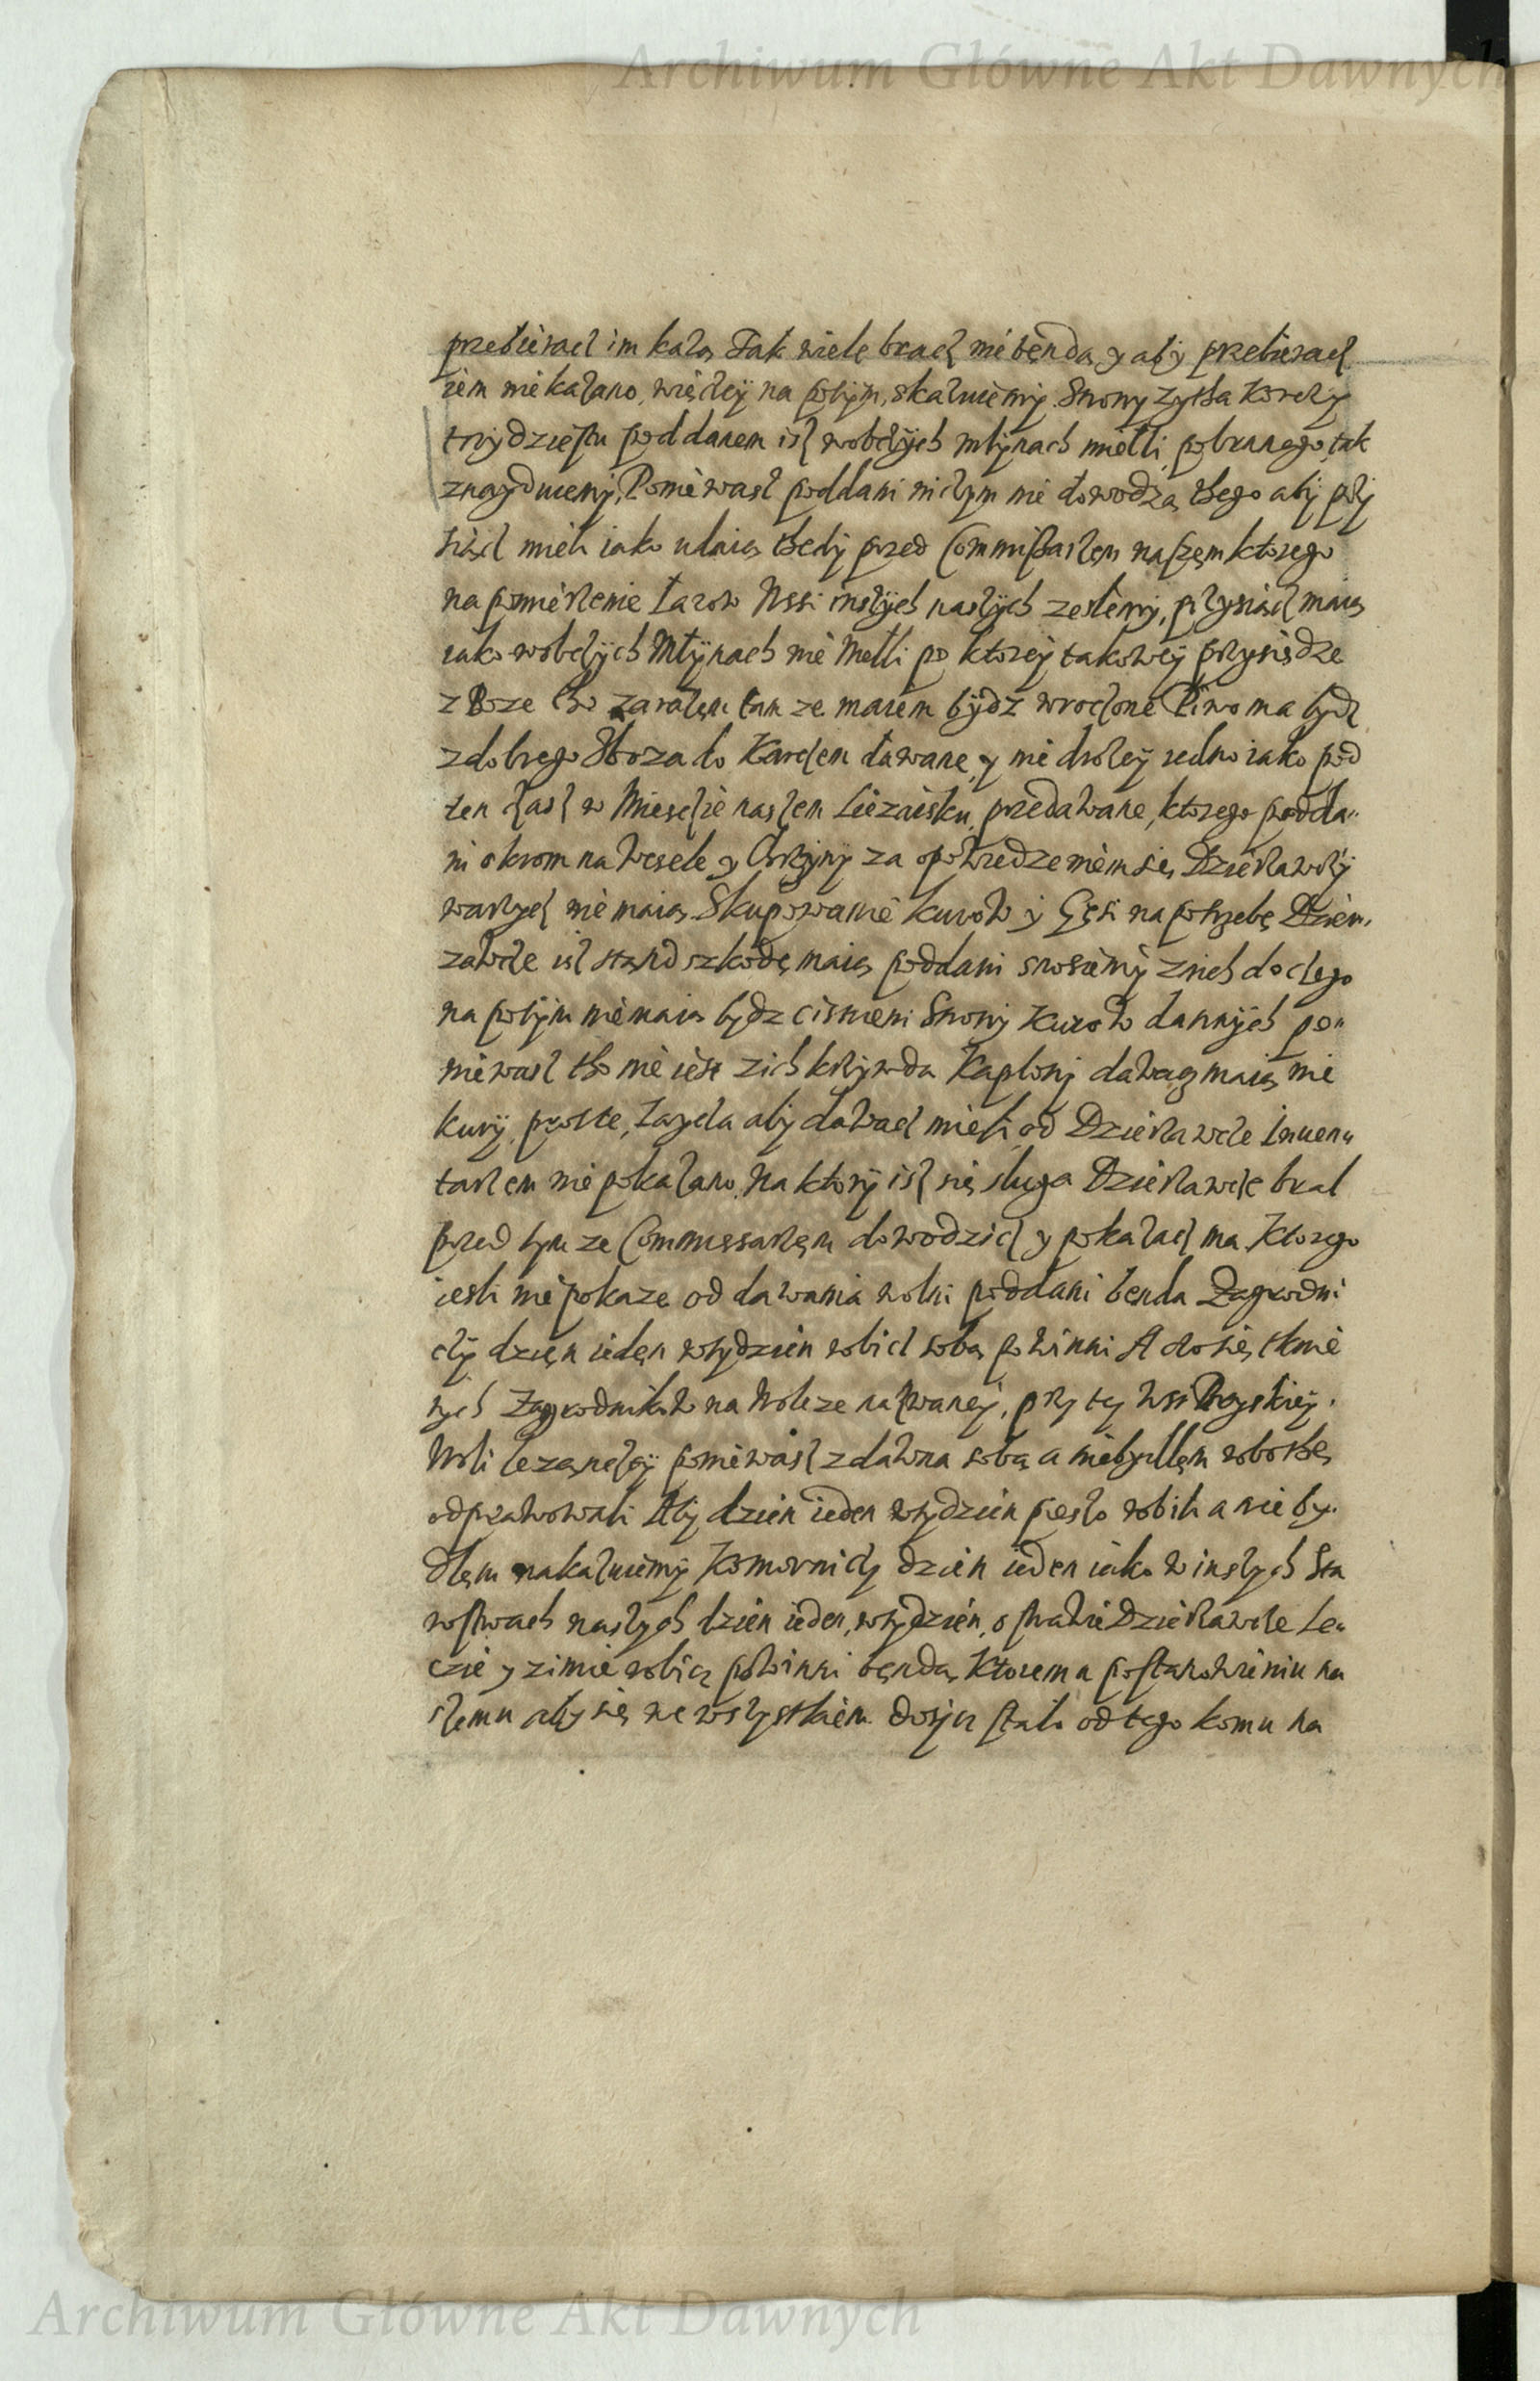 Archiwum Główne Akt Dawnych
przebieracz im każą Tak wiele bracz nie bęndą y aby przebieracz
iem nie kazano, więczy na potym, skazuiemy. Strony Zytha Korczy
trzydziestu poddanem isz w obczych młynach mełli pobranego, tak
znayduiemy, Poniewasz poddani niczym nie dowodzą thego aby przy
siącz mieli iako udaią thedy przed Commissarzem naszem ktorego
na pomierzenie Łanow Wssi inszych naszych zeslemy, przysiącz maią
iako w obczych Młynach nie Mełli po ktorey takowey przysiędze
zboze tho zarazem tam ze maiem bydz wroczone Piwo ma bydz
z dobrego Sboza do Karczem dawane, y nie drozey iedno iako pod
ten czasz w Miesczie naszem Liezaisku, przedawane, ktorego podda
ni okrom na Wesele y Chrzciny za opowiedzeniem się Dzierzawczy
warzycz nie maią. Skupowanie kurow y Gęsi na potrzebę Dzier
zawcze isz stąnd szkodę maią poddani snosiemy z nich do czego
na potym nie maią bydz cisnieni Strony Kurow dannych po
niewasz tho nie iest z ich krzywdą Kapłony dawacz maią nie
kury, proste, Zayęcza aby dawacz mieli od Dzierzawcze Inuen
tarzem nie pokazano. Na ktory isz się sługa Dzierzawcze brał
przed tym ze Commissarzem dowodzicz y pokazacz ma. Ktorego
iesli nie pokaze od dawania wolni poddani bęnda Zagrodni
czy dzięn ieden w tydzien robicz sobą powinni A co się tknie
tych Zagrodnikow na Wolcze nazwaney, przy tey wssi
Woli lezącey poniewasz z dawna sobą a nie bydłem robothę
odprawowali Aby dzien ieden w tydzien pieszo robili a nie by
dłem nakazuiemy Komornicy dzien ieden iako w inszych Sta
rostwach naszych dzien ieden, w tydzien, o strawie Dzierzawcze Le
czie y zimie robicz powinni bęndą Ktoremu postanowieniu na
szemu aby się we wszystkiem dosycz stało od tego komu na
Archiwum Główne Akt Dawnych